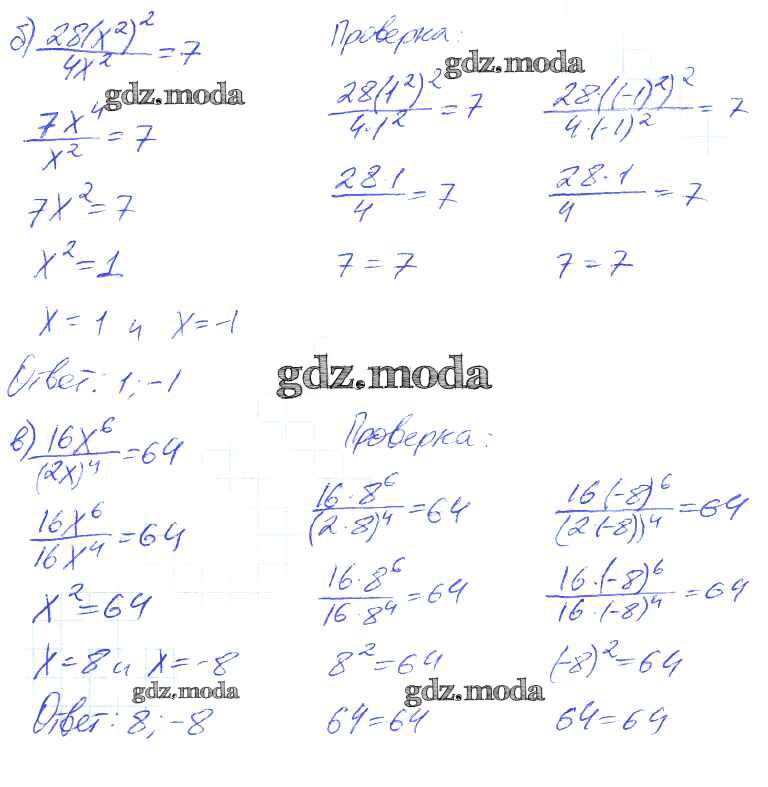 б) 28(x²)²/4x² = 7
Проверка:
gdz.moda
gdz.moda
7x⁴/x² = 7
28(1²)²/4·1² = 7
28·((-1)²)²/4·(-1)² = 7
7x² = 7
28·1/4 = 7
28·1/4 = 7
x² = 1
7 = 7
7 = 7
x = 1 и x = -1
Ответ: 1; -1
gdz.moda
в) 16x⁶/(2x)⁴ = 64
Проверка:
16x⁶/16x⁴ = 64
16·8⁶/(2·8)⁴ = 64
16(-8)⁶/(2(-8))⁴ = 64
x² = 64
16·8⁶/16·8⁴ = 64
16·(-8)⁶/16·(-8)⁴ = 64
x = 8 и x = -8
8² = 64
(-8)² = 64
gdz.moda
gdz.moda
Ответ: 8; -8
64 = 64
64 = 64